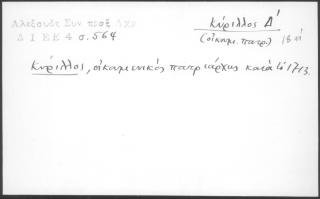 Αλεξουδε Συν πραξ Αχρ
Δ Ι ΕΕ 4 σ.564
Κύριλλος Δ'
(οἰκουμ. πατρ.)
Κύριλλος, οἰκουμενικός πατριάρχης κατά τό 1713.